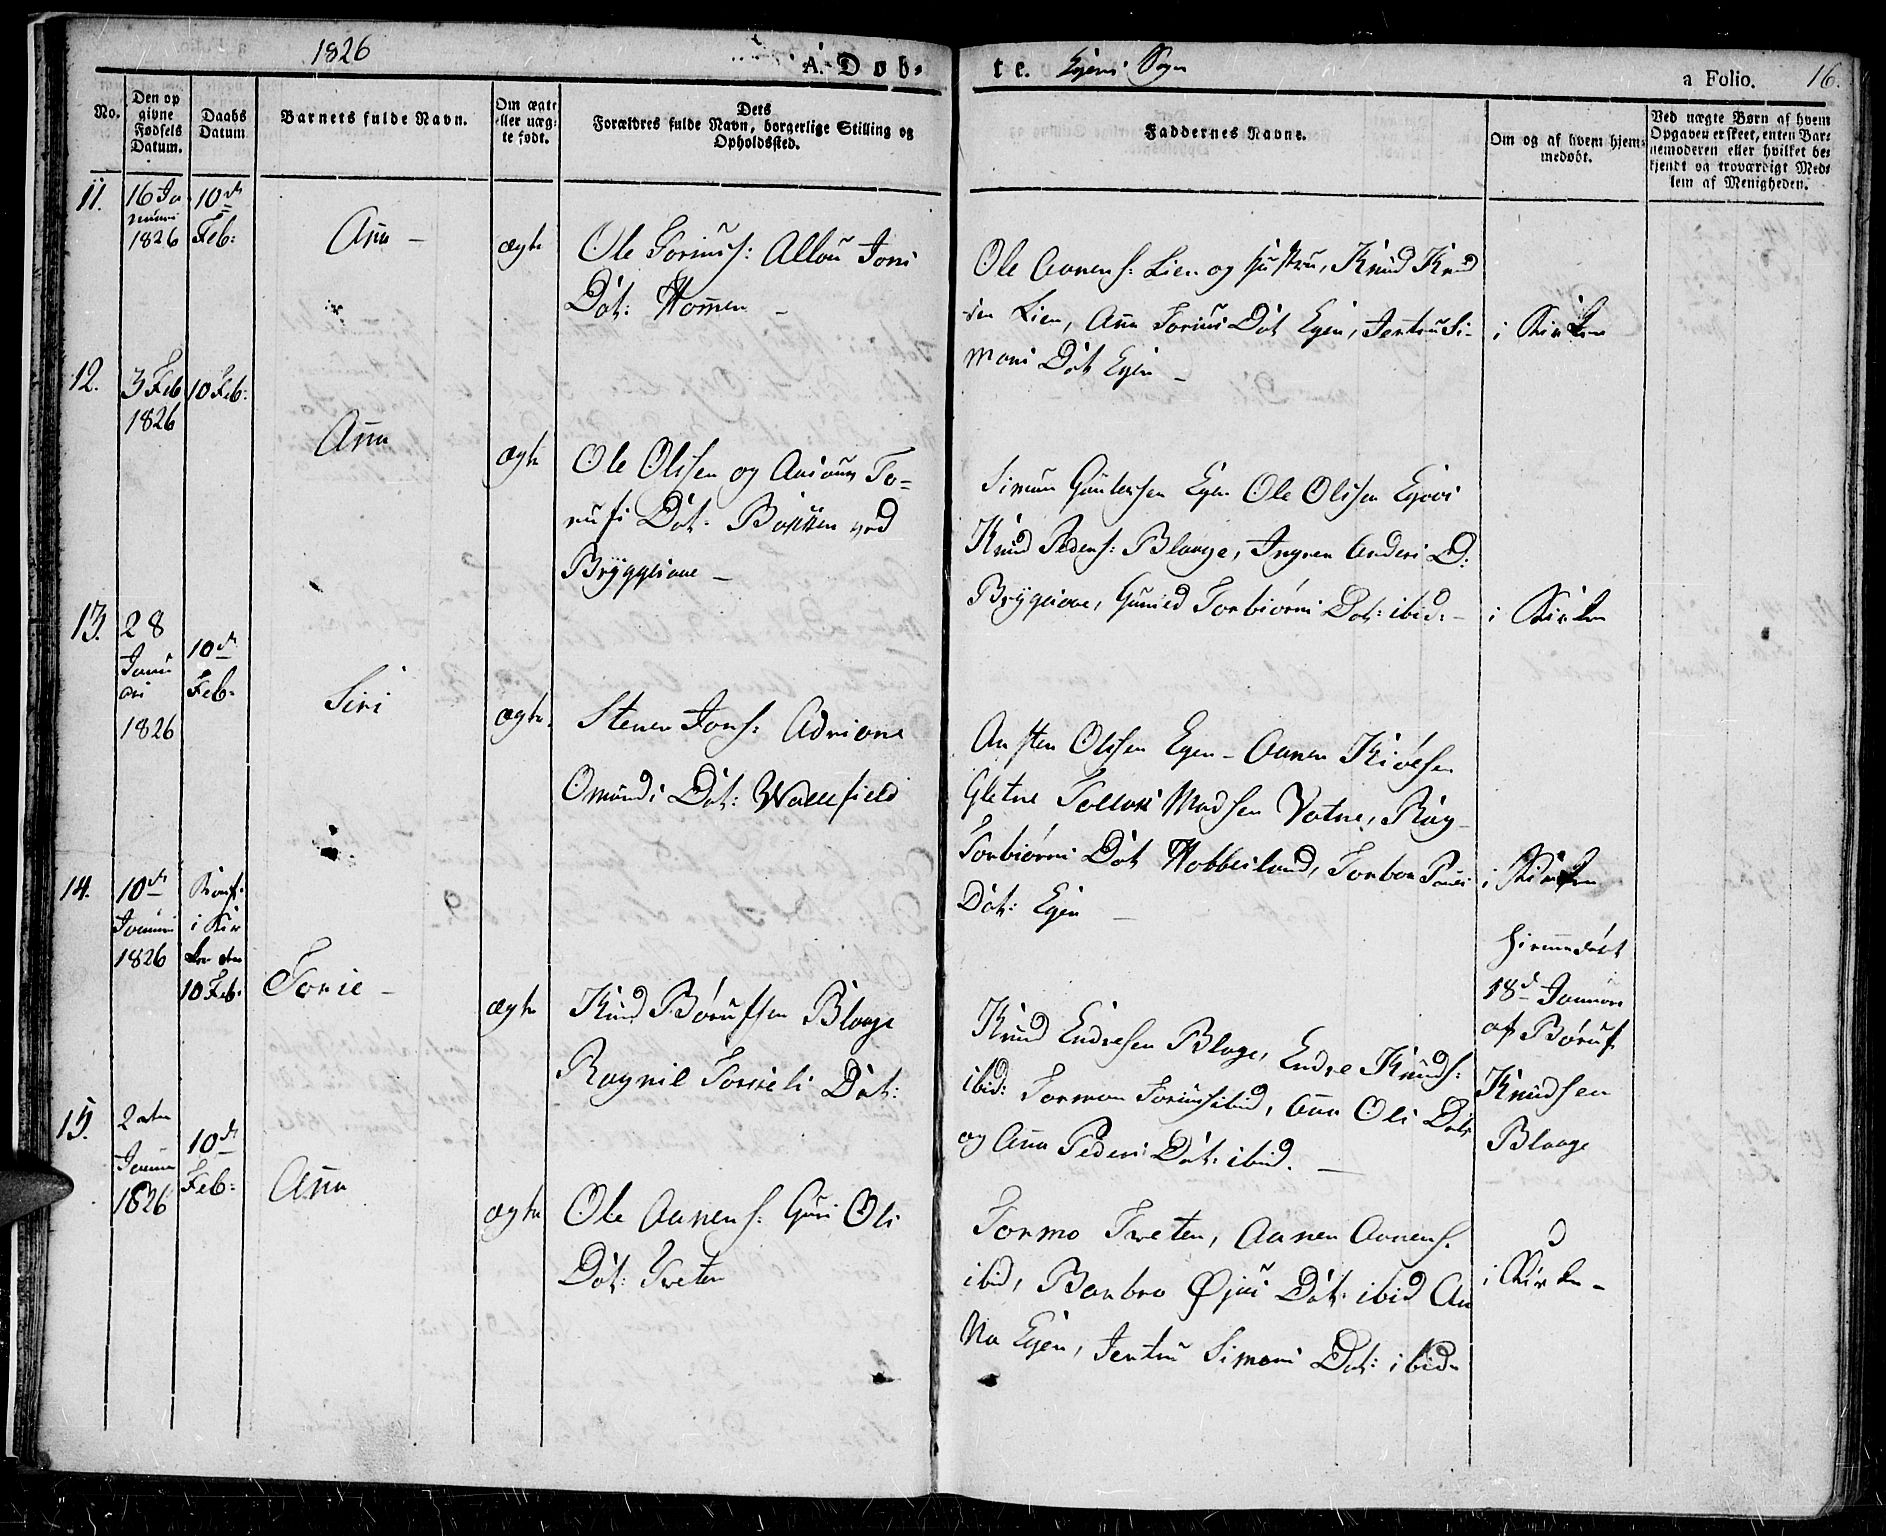 1826
A. Døb-
te. Egens Sogn
a Folio. 16.
No.
Den op
givne
Fødsels
Datum.
Daabs
Datum
Barnets fulde Navn.
Om ægte
eller uæg-
te født.
Dets
Forældres fulde Navn, borgerlige Stilling og
Opholdssted.
Faddernes Navne.
Om og af hvem hjem-
medøbt.
Ved uægte Børn af hvem
Opgaven er skeet, enten Bar-
nemoderen eller hvilket be-
kjendt og troværdigt Med-
lem af Menigheden.
11.
16 Ja
nuari
1826
10de
Feb:
Ann
ægte
Ole Toriuss: Allou Joni
Dot: Homen
Ole Aanens: Lien og Hustru, Knud Knud
sen Lien, Ann Toriusi Dot Egen, Jertru Si-
moni Dot Egen
i Kirken
12.
3 Feb
1826
10 Feb:
Ann
ægte
Ole Olssen og To-
rufi Dot: Bakken ved
Bryggisaae
Simun Guntersen Egen Ole Olssen
Knud Peders: Blaage, Ingren Anders D:
Gunild Torbiørni Dot: ibid:
i Kirken
13.
28
Janu
ari
1826
10de
Feb:
Siri
ægte
Stener Jons: Adriane
Omundi Dot: Wallefield
Ansten Olssen Egen - Aanen
Gletne Tellef Madsen Vatne, Rag
Torbiørni Dot Hobbesland, Torbor
Dot: Egen
i Kirken
14.
10de
Januari
1826
i Kir
ken den
10 Feb:
Torie
ægte
Knud Børufsen Blaage
Ragnil Torieli Dot:
Knud Endresen Blage, Endre Knuds:
ibid: Tormon ibid, Ann Oli Dot
og Ann Pederi Dot: ibid.
hiemmedøbt
18d Januari
af Børuf
Knudsen
Blaage
15.
2den
Januar
1826
10de
Feb:
Ann
ægte
Ole Aanens: Guri Oli
Dot: Tveten
Tormo Tveten, Aanen Aanens.
ibid, Barbro Øjui Dot: ibid An
na Egen, Jertru Simoni Dot: ibid
i Kirken